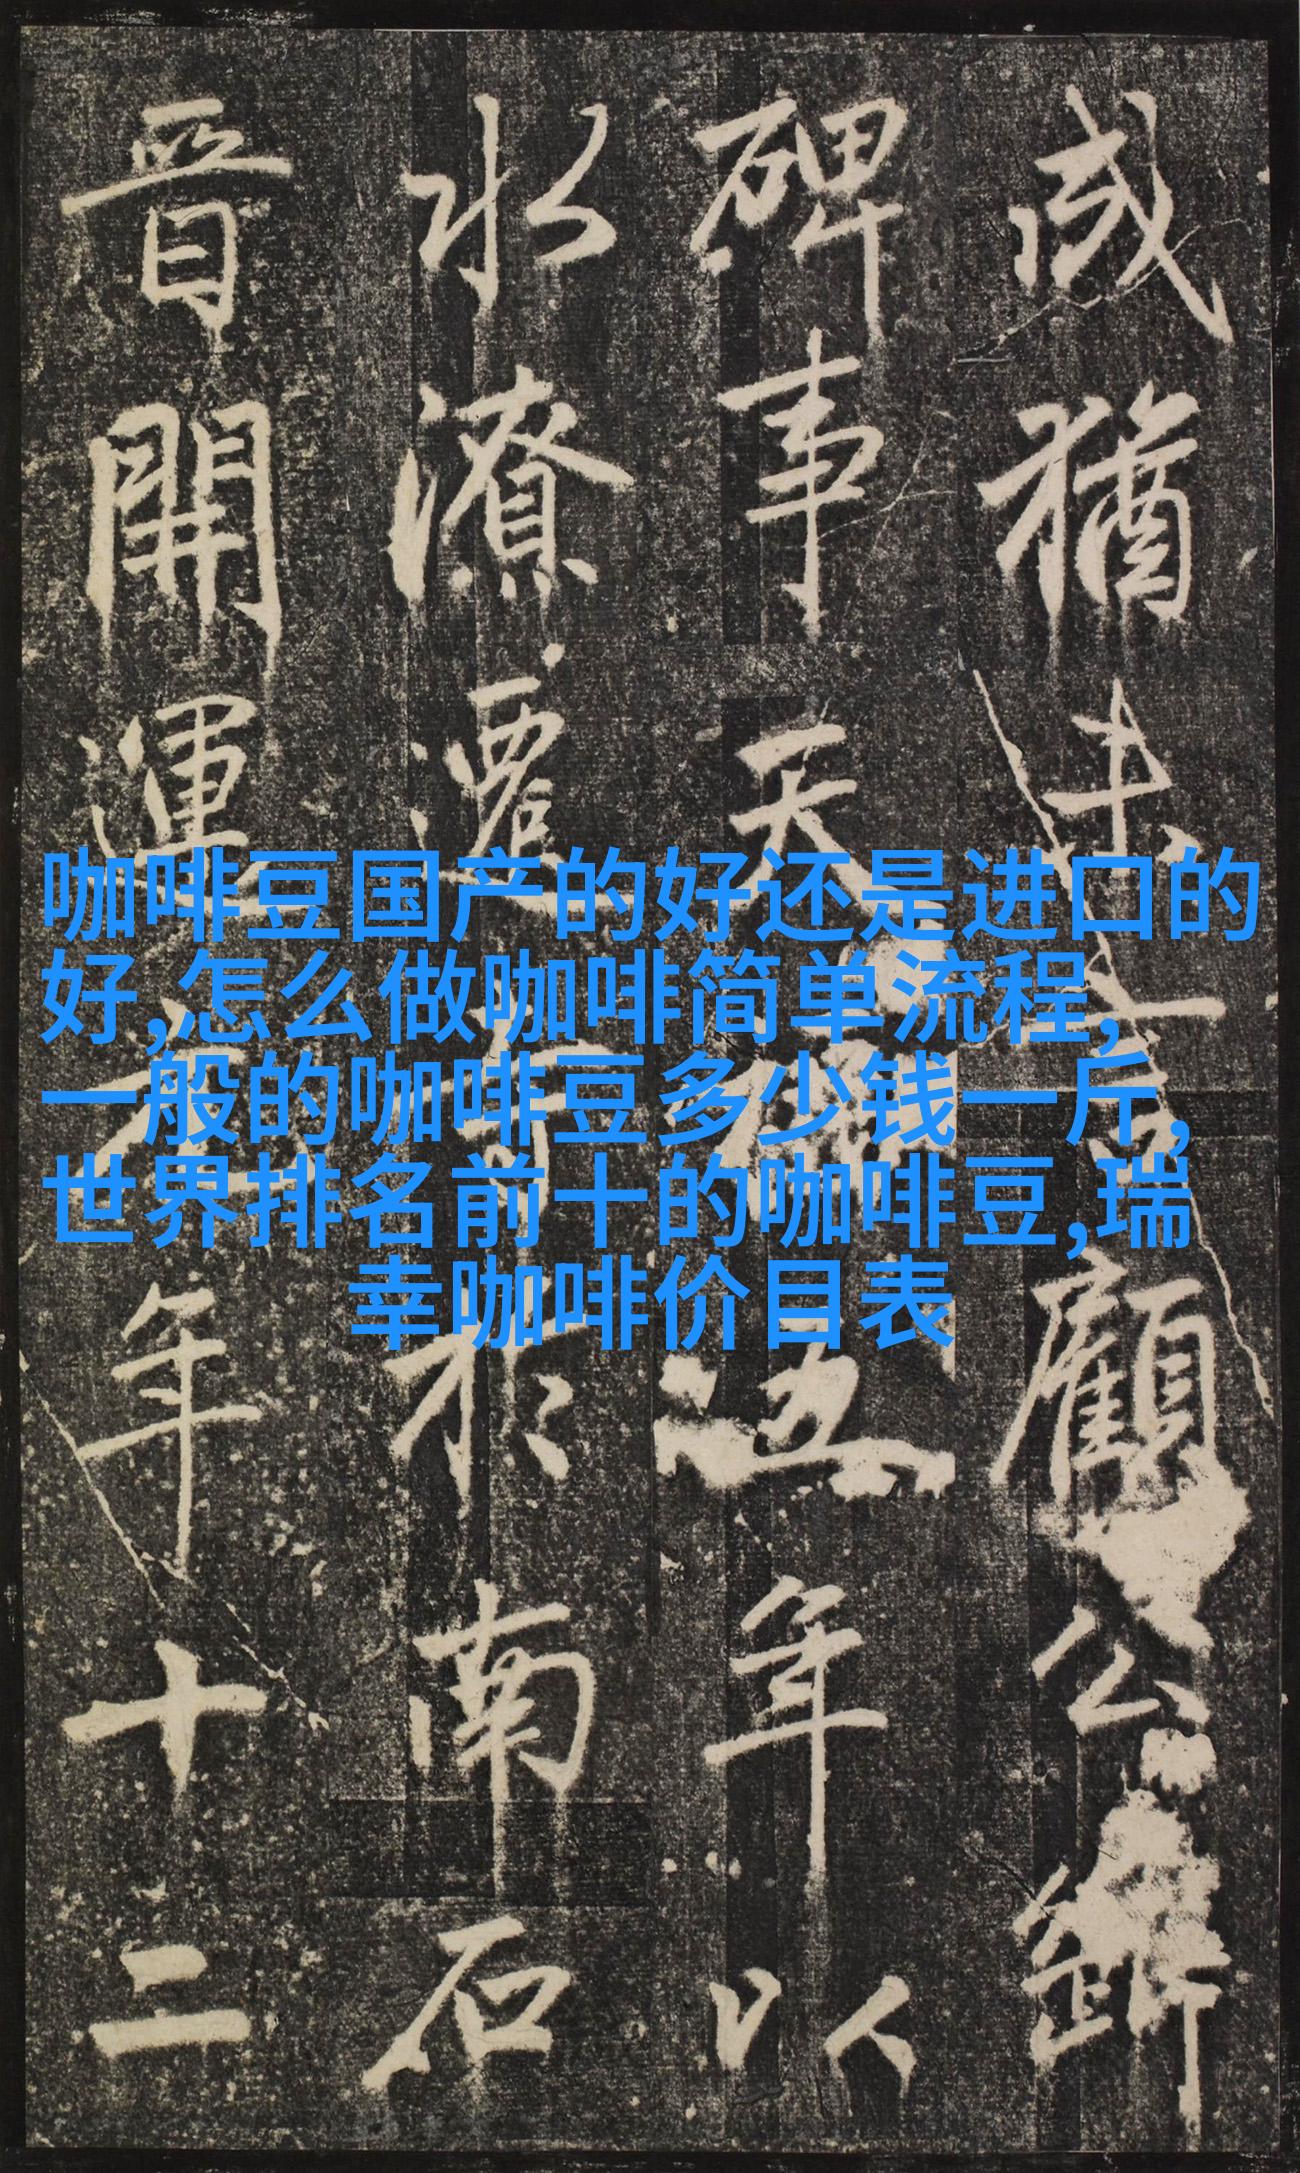 咖啡豆国产的好还是进口的
好,怎么做咖啡简单流程,
一般的咖啡豆多少钱一斤,
世界排名前十的咖啡豆,瑞
幸咖啡价目表
猶顧公
碑事天五年以
水潦遷於南石
晉開運年十二